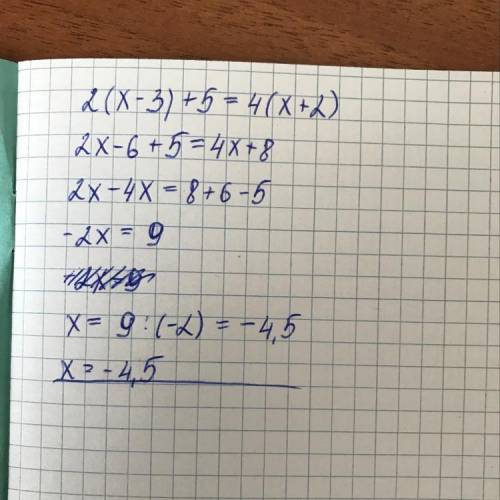 2(x-3)+5=4(x+2)
2x-6+5=4x+8
2x-4x=8+6-5
-2x=9
x=9:(-2)=-4,5
x=-4,5